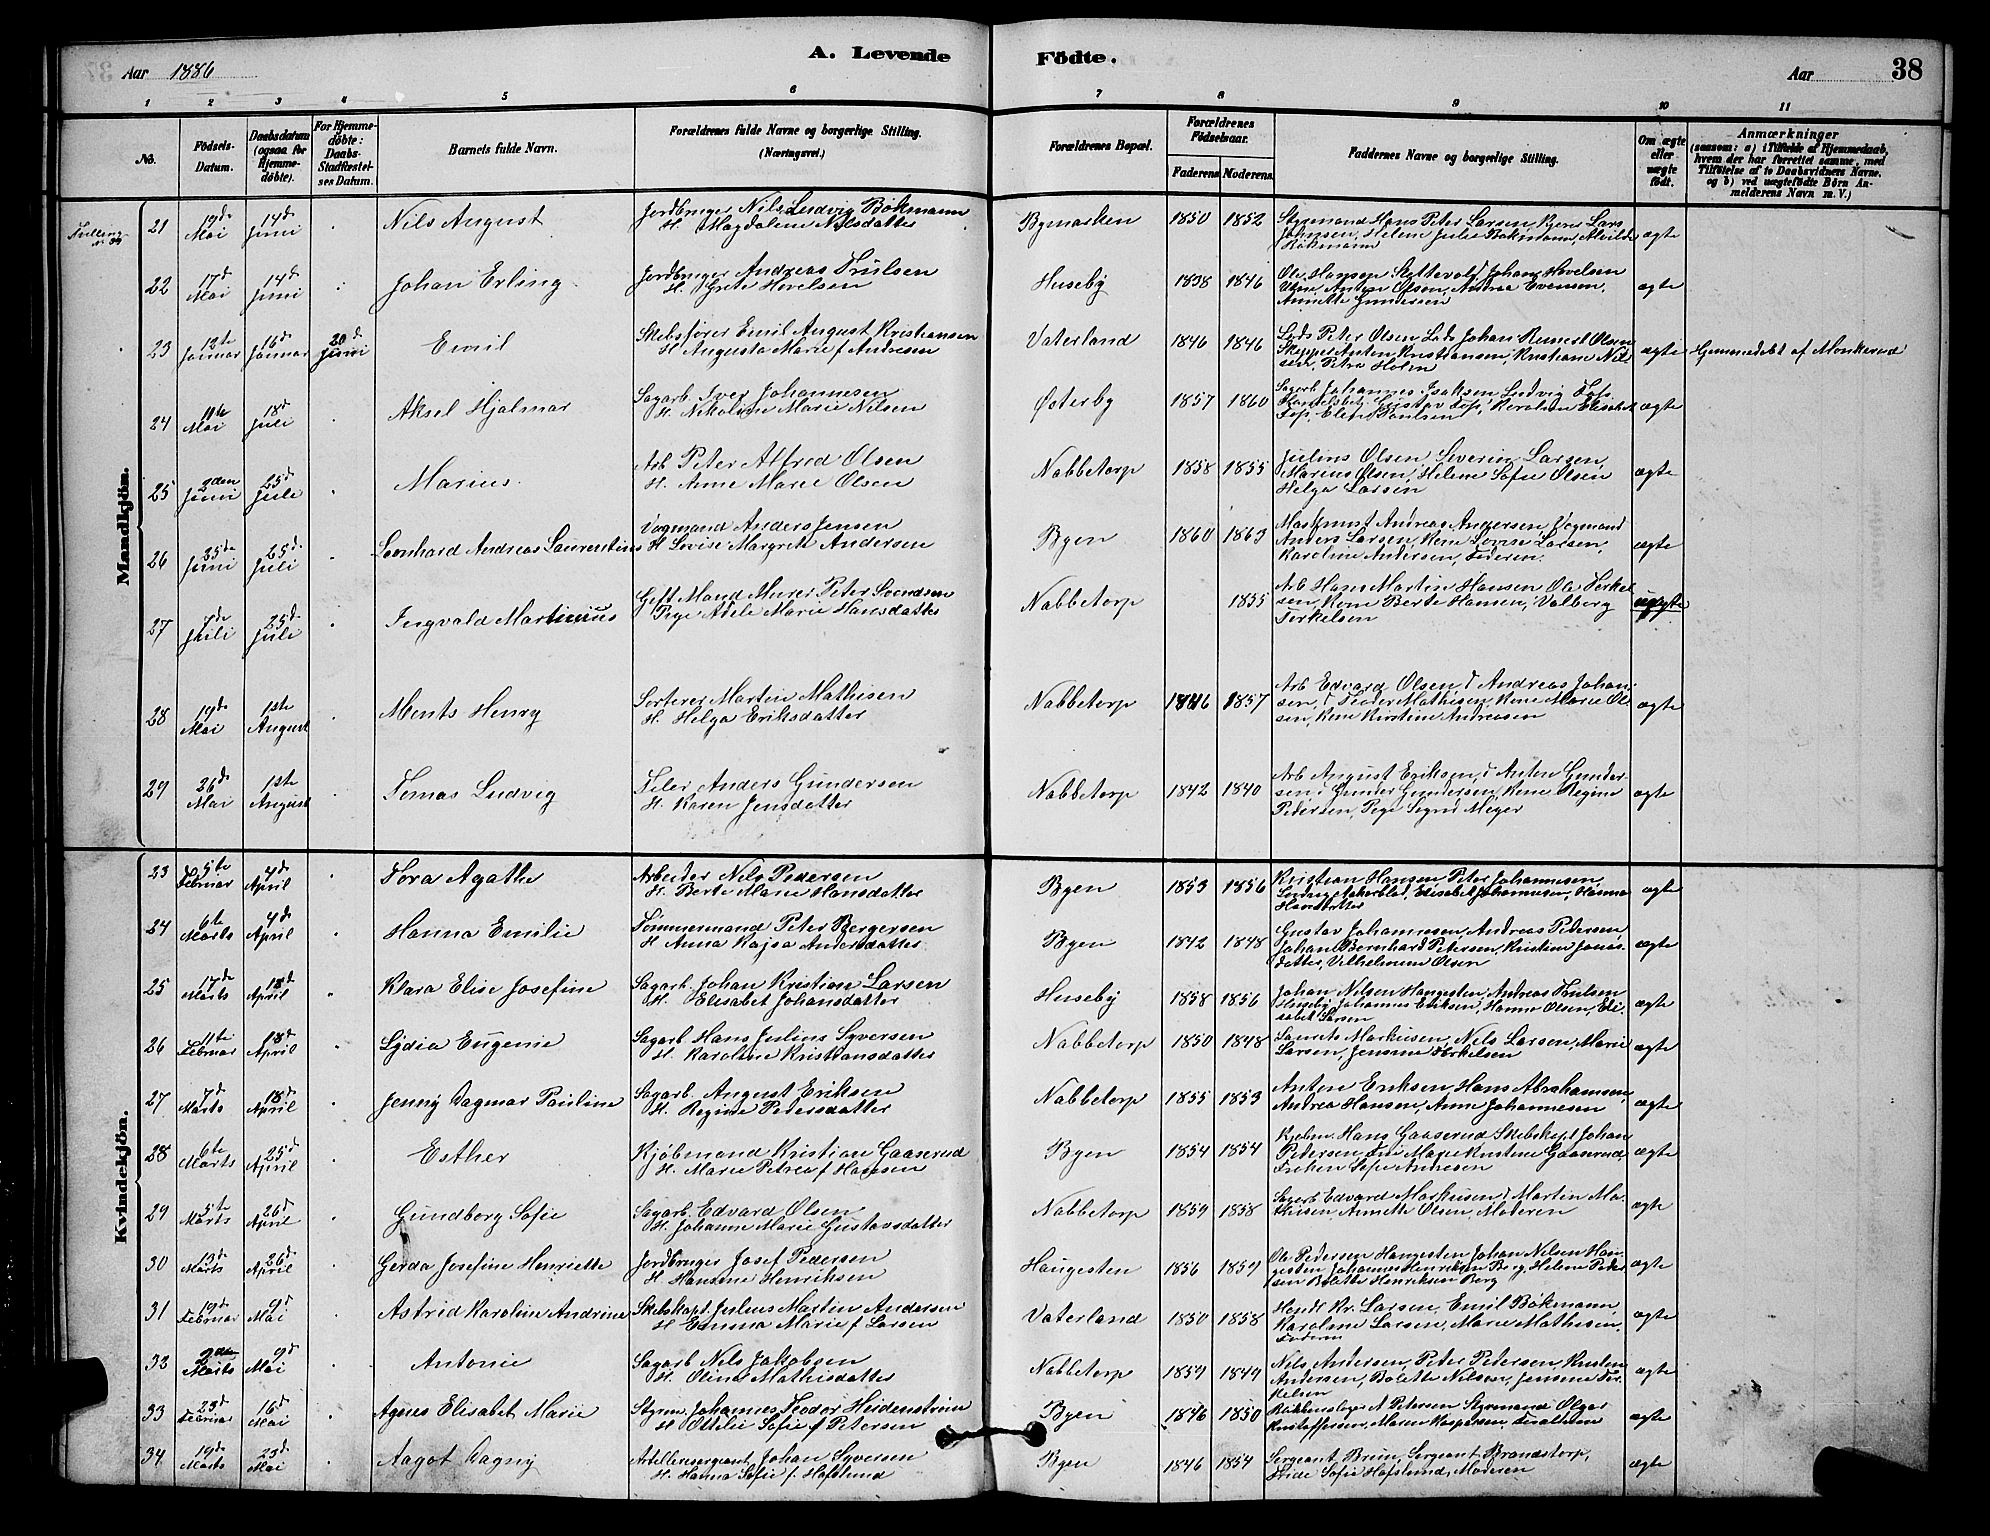 Aar 1886
A. Levende
Födte.
Aar
38
1 2 3 4 5 6 7 8 9 10 11
No.
Födsels-Datum.
Daabsdatum (ogsaa for Hjemme-döbte).
For Hjemme-döbte: Daabs-Stadfæstel-ses Datum.
Barnets fulde Navn.
Forældrenes fulde Navne og borgerlige Stilling. (Næringsvei.)
Forældrenes Bopæl.
Forældrenes Födselsaar.
Faderens. Moderens.
Faddernes Navne og borgerlige Stilling.
Om ægte eller uægte födt.
Anmærkninger
(saasom: a) i Tilfælde af Hjemmedaab, hvem der har forrettet samme, med Tilföielse af to Daabsvidners Navne, og b) ved uægtefödte Börn An-melderens Navn m. V.)
Mandkjön.
21 19de Mai 14de Juni Nils August Jordbruger Nils Ludvig Bökmann
H. Magdalene Nilsdatter Bymarken 1850 1852 Styrmand Hans Peter Larsen, Lars
Johnsen, Helene Julie Bökmann, Alvilde
Bökmann ægte
22 17de Mai 14de Juni Johan Erling Jordbruger Andreas Trulsen
H. Grete Hovelsen Huseby 1838 1846 Ole Hansen Johan Hovelsen
Anton Olsen, Andrea Evensen,
Annette Gundersen ægte
23 12te Januar 16de Januar 20de Juni Emil Skibsfører Emil August Kristiansen
H. Augusta Marie f. Andresen Vaterland 1846 1846 Lods Peter Olsen Lods Johan Olsen
Skipper Anton Kristiansen, Kristiane Niel-
sen, Petra Holm ægte Hjemmedøbt af Monkerud
24 Mai 18de Juli Aksel Hjalmar Sagarb. Iver Johannesen
H. Nikoline Marie Nilsen Østerby 1857 1860 Sagarb. Johannes Isaksen Ludvig
Karoline
ægte
25 2den Juni 25de Juli Marius Arb. Peter Alfred Olsen
H. Anne Marie Olsen Nabbetorp 1858 1855 Julius Olsen Severin Larsen,
Marius Olsen, Helene Sofie Olsen
Helga Larsen ægte
26 25de Juni 25de Juli Leonhard Andreas Laurentius Vogmand Anders Jensen
H. Lovise Margrete Andersen Byen 1860 1863 Andreas Andersen, Vogmand
Anders Larsen, Kone Lovise Larsen,
Karoline Andersen, Faderen. ægte
27 7de Juli 25de Juli Ingvald Martinius Gift Mand Murer Peter Svendsen
Pige Adele Marie Hansdatter Nabbetorp 1855 Arb. Hans Martin Hansen Ole Terkel-
sen, Kone Berte Hansen, Valborg
Terkelsen uægte
28 19de Mai 1ste August Ments Henry Sorterer Martin Mathisen
H. Helga Eriksdatter Nabbetorp 1846 1857 Arb. Edvard Olsen, Andreas Johan-
sen, Teodor Mathisen, Kone Marie Ol-
sen, Kone Kirstine Andreasen ægte
29 26de Mai 1ste August Tomas Ludvig Filer Anders Gundersen
H. Karen Jensdatter Nabbetorp 1842 1840 Arb. August Eriksen, Anton Gunder-
sen, Gunder Gundersen, Kone Regine
Pedersen, Pige Sigrid Meyer ægte
Kvindekjön.
23 5te Februar 4de April Tora Agathe Arbeider Nils Pedersen
H. Berte Marie Hansdatter Byen 1853 1856 Kristian Hansen Peter Johannesen,
Ludvig Elisabet Johannesen, Hanna
Hansdatter ægte
24 6te Marts 4de April Hanna Emilie Tømmermand Peter Bergersen
H. Anna Kajsa Andersdatter Byen 1842 1848 Gustav Johannesen, Andreas Pedersen
Johan Bernhard Petersen, Kristine Jonas-
datter, Vilhelmine Olsen ægte
25 17de Marts 18de April Klara Elise Josefine Sagarb. Johan Kristian Larsen
H. Elisabet Johansdatter Huseby 1858 1856 Johan Nilsen Haugesten, Andreas Trulsen
Huseby, Johannes Eriksen, Hanna Olsen, Eli-
sabet Larsen ægte
26 11te Februar 18de April Lydia Eugenie Sagarb. Hans Julius Syversen
H. Karoline Kristiansdatter Nabbetorp 1850 1848 Laurits Markusen, Nils Larsen, Marie
Larsen, Jensine Terkelsen ægte
27 7de Marts 18de April Jenny Dagmar Pauline Sagarb. August Eriksen
H. Regine Pedersdatter Nabbetorp 1855 1853 Anton Eriksen, Hans Abrahamsen,
Andrea Hansen, Anne Johannesen ægte
28 6te Marts 25de April Esther Kjöbmand Kristian Gaaserud
H. Marie Petrea f. Hansen Byen 1854 1854 Kjøbm. Hans Gaaserud Skibskapt. Johan
Petersen, Marie Kristine Gaaserud,
Frøken Sofie Andresen ægte
29 5te Marts 26de April Gundborg Sofie Sagarb. Edvard Olsen
H. Johanne Marie Gustavsdatter Nabbetorp 1859 1858 Sagarb. Edvard Markusen, Martin Ma-
thisen, Annette Olsen, Moderen ægte
30 13de Marts 26de April Gerda Josefine Henriette Jordbruger Josef Pedersen
H. Hansine Henriksen Haugesten 1856 1859 Ole Pedersen Haugesten, Johan Nilsen Hau-
gesten Johannes Henriksen Berg, Helene Peder-
sen Bolette Henriksen Berg ægte
31 19de Februar 9de Mai Astrid Karoline Andrine Skibskapt. Julius Martin Andersen
H. Emma Marie f. Larsen Vaterland 1850 1858 Handl. Kr. Larsen, Emil Bökmann,
Karoline Larsen, Marie Mathisen,
Faderen ægte
32 2den Marts 9de Mai Antonie Sagarb. Nils Jakobsen
H. Oline Mathisdatter Nabbetorp 1859 1849 Nils Andersen, Peter Petersen, Kristen
Andersen, Bolette Nilsen, Jensine Ter-
kelsen ægte
33 23de Februar 16de Mai Agnes Elisabet Marie Styrm. Johannes Teodor Heidenstrøm
H. Ottilie Sofie f. Petersen Byen 1846 1850 A. Petersen Styrmand Olger
Kristoffersen, Maren Kaspersen, Faderen ægte
34 19de Marts 23de Mai Aagot Dagny Artillerisergeant Johan Syversen
H. Hanna Sofie f. Hafslund Byen 1846 1854 Sergeant Brun, Sergeant Brandstorp,
Sofie Hafslund, Moderen ægte